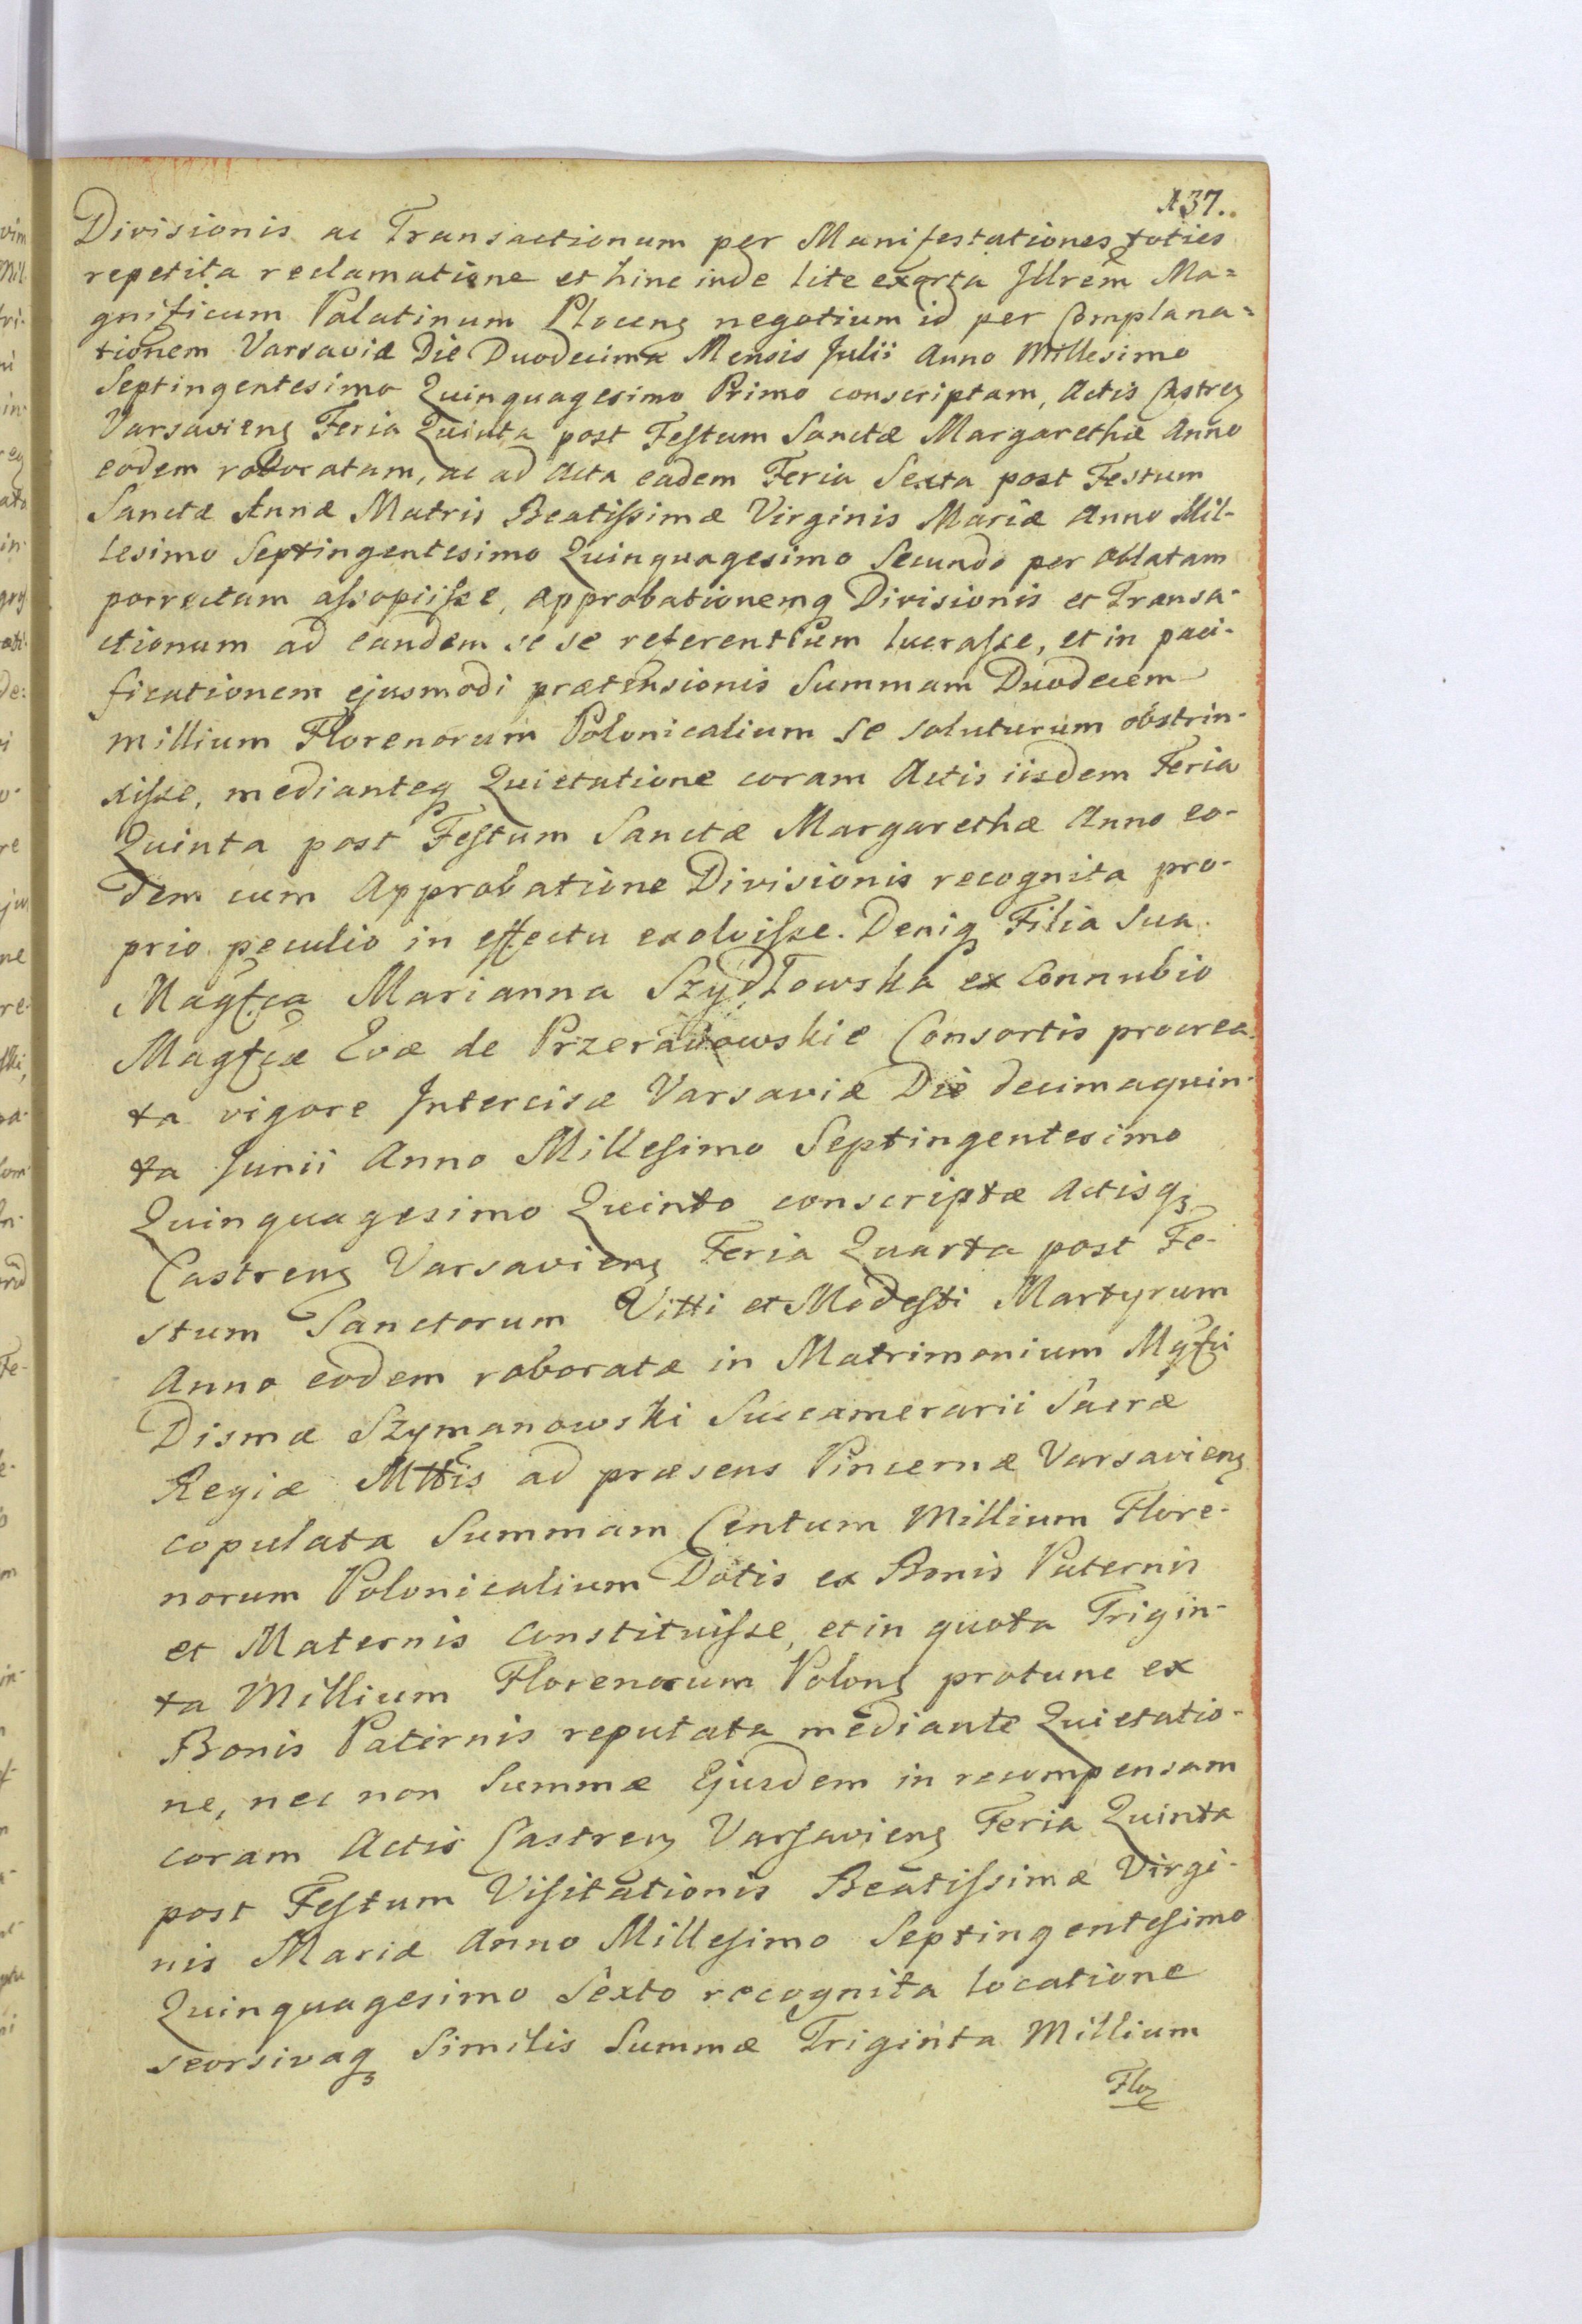 137.
Divisionis ac Transactionum per Manifestationes toties
repetita reclamatione et hinc inde lite exorta Jllrem Ma=
gnificum Palatinum Ploceng negotium id per Complana=
tionem Varsaviæ Die Duodecima Mensis Julii Anno Millesimo
Septingentesimo Quinquagesimo Primo conscriptam, Actis Castreg
Varsavieng Feria Quinta post Festum Sanctæ Margarethæ Anno
eodem roboratam, ac ad Acta eadem Feria Sexta post Festum
Sanctæ Annæ Matris Beatissimæ Virginis Mariæ Anno Mil-
lesimo Septingentesimo Quinquagesimo Secundo per Oblatam
porrectam assopiisse, Approbationemq Divisionis et Transa-
ctionum ad eandem se se referentium lucrasse, et in paci-
ficationem ejusmodi prætensionis Summam Duodecem
millium Florenorum Polonicalium se soluturum obstrin-
xisse, medianteq Quietatione coram Actis iisdem Feria
Quinta post Festum Sanctæ Margarethæ Anno eo-
dem cum Approbatione Divisionis recognita pro-
prio peculio in effectu exolvisse. Deniq Filia Sua
Magfca Marianna Szydłowska ex Connubio
Magfcæ Evæ de Przeradowskie Consortis procrea-
ta vigore Jntercisæ Varsaviæ Die decimaquin-
ta Junii Anno Millesimo Septingentesimo
Quinquagesimo Quinto conscriptæ Actisq
Castreng Varsavieng Feria Quarta post Fe-
stum Sanctorum Vitti et Modesti Martyrum
Anno eodem roboratæ in Matrimonium Mgfci
Dismæ Szymanowski Succamerarii Sacræ
Regiæ Mttis ad præsens Pincernæ Varsavieng
copulata Summam Centum Millium Flore-
norum Polonicalium Dotis ex Bonis Paternis
et Maternis constituisse, et in quota Trigin-
ta Millium Florenorum Polong protunc ex
Bonis Paternis reputata mediante Quietatio-
ne, nec non Summæ Ejusdem in recompensam
coram Actis Castreng Varsavieng Feria Quinta
post Festum Visitationis Beatissimæ Virgi-
nis Mariæ Anno Millesimo Septingentesimo
Quinquagesimo Sexto recognita locatione
seorsivaq Similis Summæ Triginta Millium
Flog